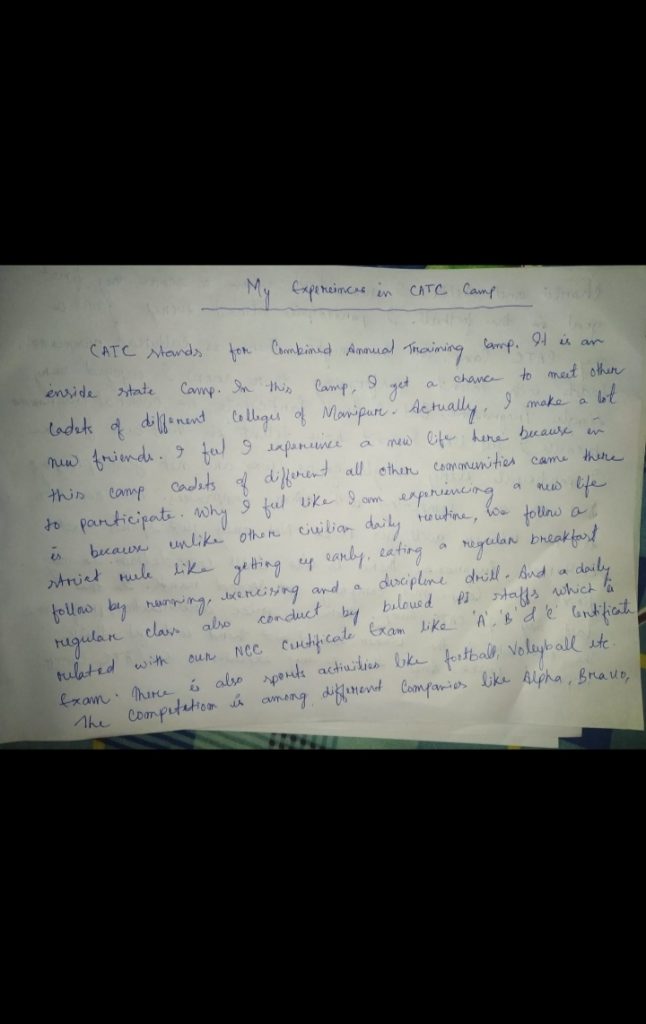 My Expereinces in CATC Camp
CATC stands for Combined Annual Training Camp. It is an
inside state Camp. In this Camp, I get a chance to meet other
Cadets of different Colleges of Manipur. Actually, I make a lot
new friends. I feel I experience a new life here because in
this camp cadets of different all other communities came there
to participate. Why I feel like I am experiencing a new life
is because unlike other civilian daily routine, we follow a
strict rule like getting up early, eating a regular breakfast
follow by running, exercising and a discipline drill. And a daily
regular class also conduct by beloved PI staffs which is
related with our NCC Certificate Exam like 'A', 'B' & 'C' Certificate
Exam. There is also sports activities like football, Volleyball etc.
The Competetion is among different Companies like Alpha, Bravo,